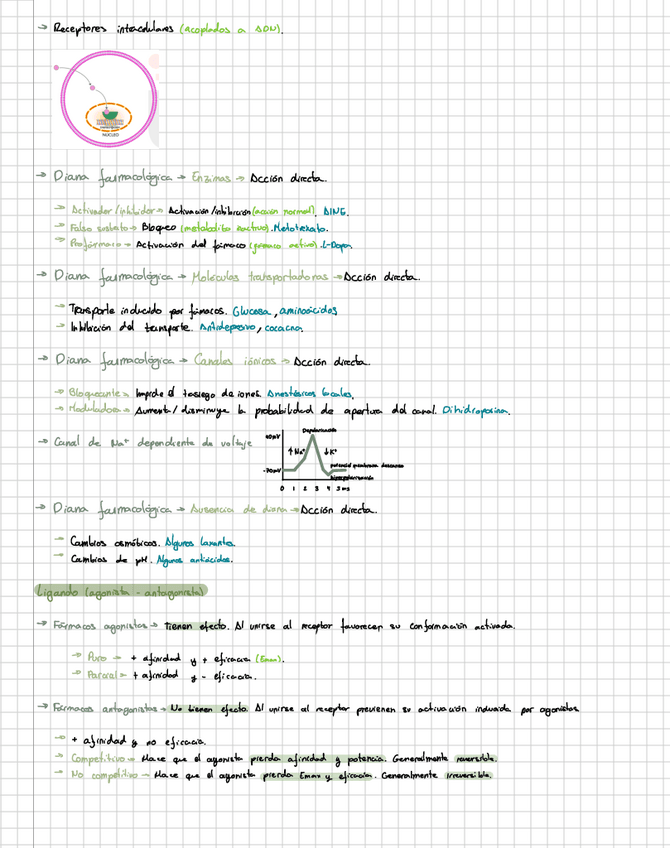 → Receptores intracelulares (acoplados a ADN).
NÚCLEO
→ Diana farmacológica → Enzimas → Acción directa.
→ Activador/inhibidor → Activación/inhibición (acción normal). AINE.
→ Falso sustrato → Bloqueo (metabolito inactivo). Metotrexato.
→ Profármaco → Activación del fármaco (fármaco activo). L-Dopa.
→ Diana farmacológica → Moléculas transportadoras → Acción directa.
→ Transporte inducido por fármacos. Glucosa, aminoácidos
→ Inhibición del transporte. Antidepresivo, cocaína.
→ Diana farmacológica → Canales iónicos → Acción directa.
→ Bloqueante → Impide el trasiego de iones. Anestésicos locales.
→ Moduladora → Aumenta/disminuye la probabilidad de apertura del canal. Dihidropirina.
→ Canal de Na⁺ dependiente de voltaje
Depolarización
↑Na⁺ ↓K⁺
potencial membrana descanso
-70mV
hiperpolarización
0 1 2 3 4 5 ms
→ Diana farmacológica → Ausencia de diana → Acción directa.
→ Cambios osmóticos. Algunos laxantes.
→ Cambios de pH. Algunos antiácidos.
Ligando (agonista - antagonista)
→ Fármacos agonistas → Tienen efecto. Al unirse al receptor favorecen su conformación activada.
→ Puro → + afinidad y + eficacia (Emax).
→ Parcial → + afinidad y - eficacia.
→ Fármacos antagonistas → No tienen efecto. Al unirse al receptor previenen su activación inducida por agonistas
→ + afinidad y no eficacia.
→ Competitivo → Hace que el agonista pierda afinidad y potencia. Generalmente reversible.
→ No competitivo → Hace que el agonista pierda Emax y eficacia. Generalmente irreversible.